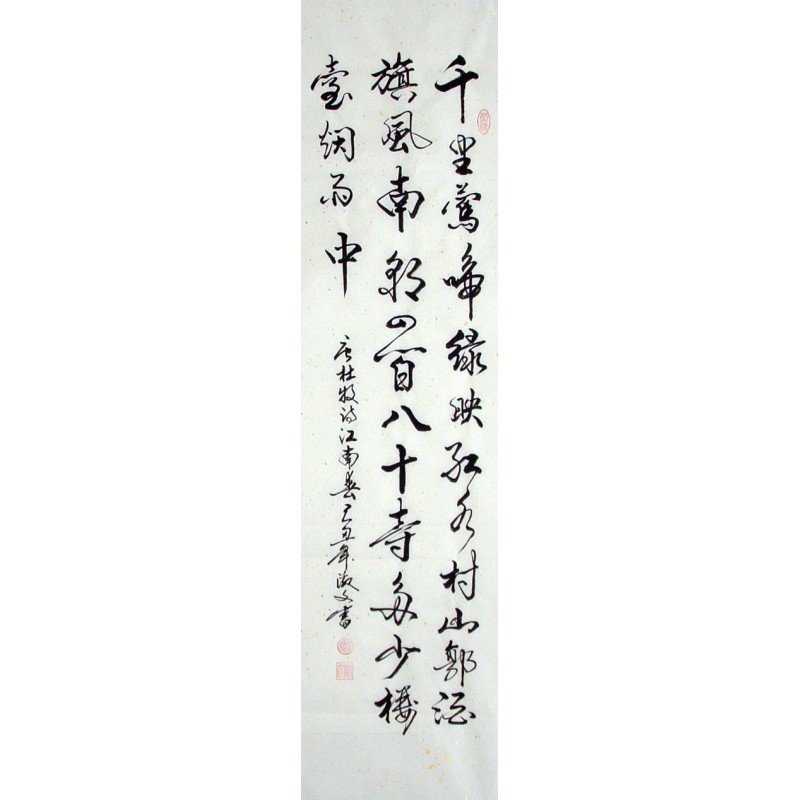 千里鶯啼緑映红水村山郭酒
旗風南朝四百八十寺多少楼
臺烟雨中
唐杜牧诗江南春己丑年淑文書